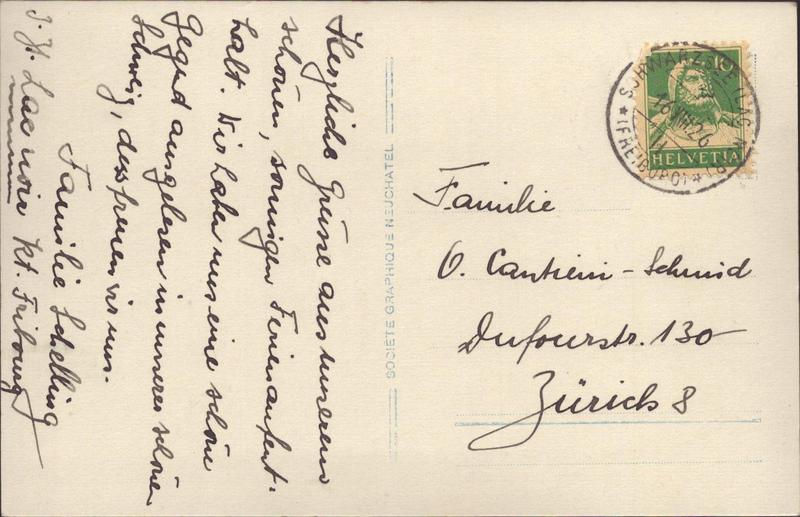 Herzliche Grüsse aus unserem
schönen, sonnigen Ferienaufent-
halt. Wir haben uns eine schöne
Gegend ausgelesen in unserer schönen
Schweiz, dess freuen wir uns.
Familie Schelling
z. Zt. Lac noir Kt. Fribourg
SOCIÉTÉ GRAPHIQUE NEUCHATEL
10
HELVETIA
SCHWARZSEE (LAC N.)
16.VIII.26
(FREIBURG)
Familie
O. Cantieni-Schmid
Dufourstr. 130
Zürich 8